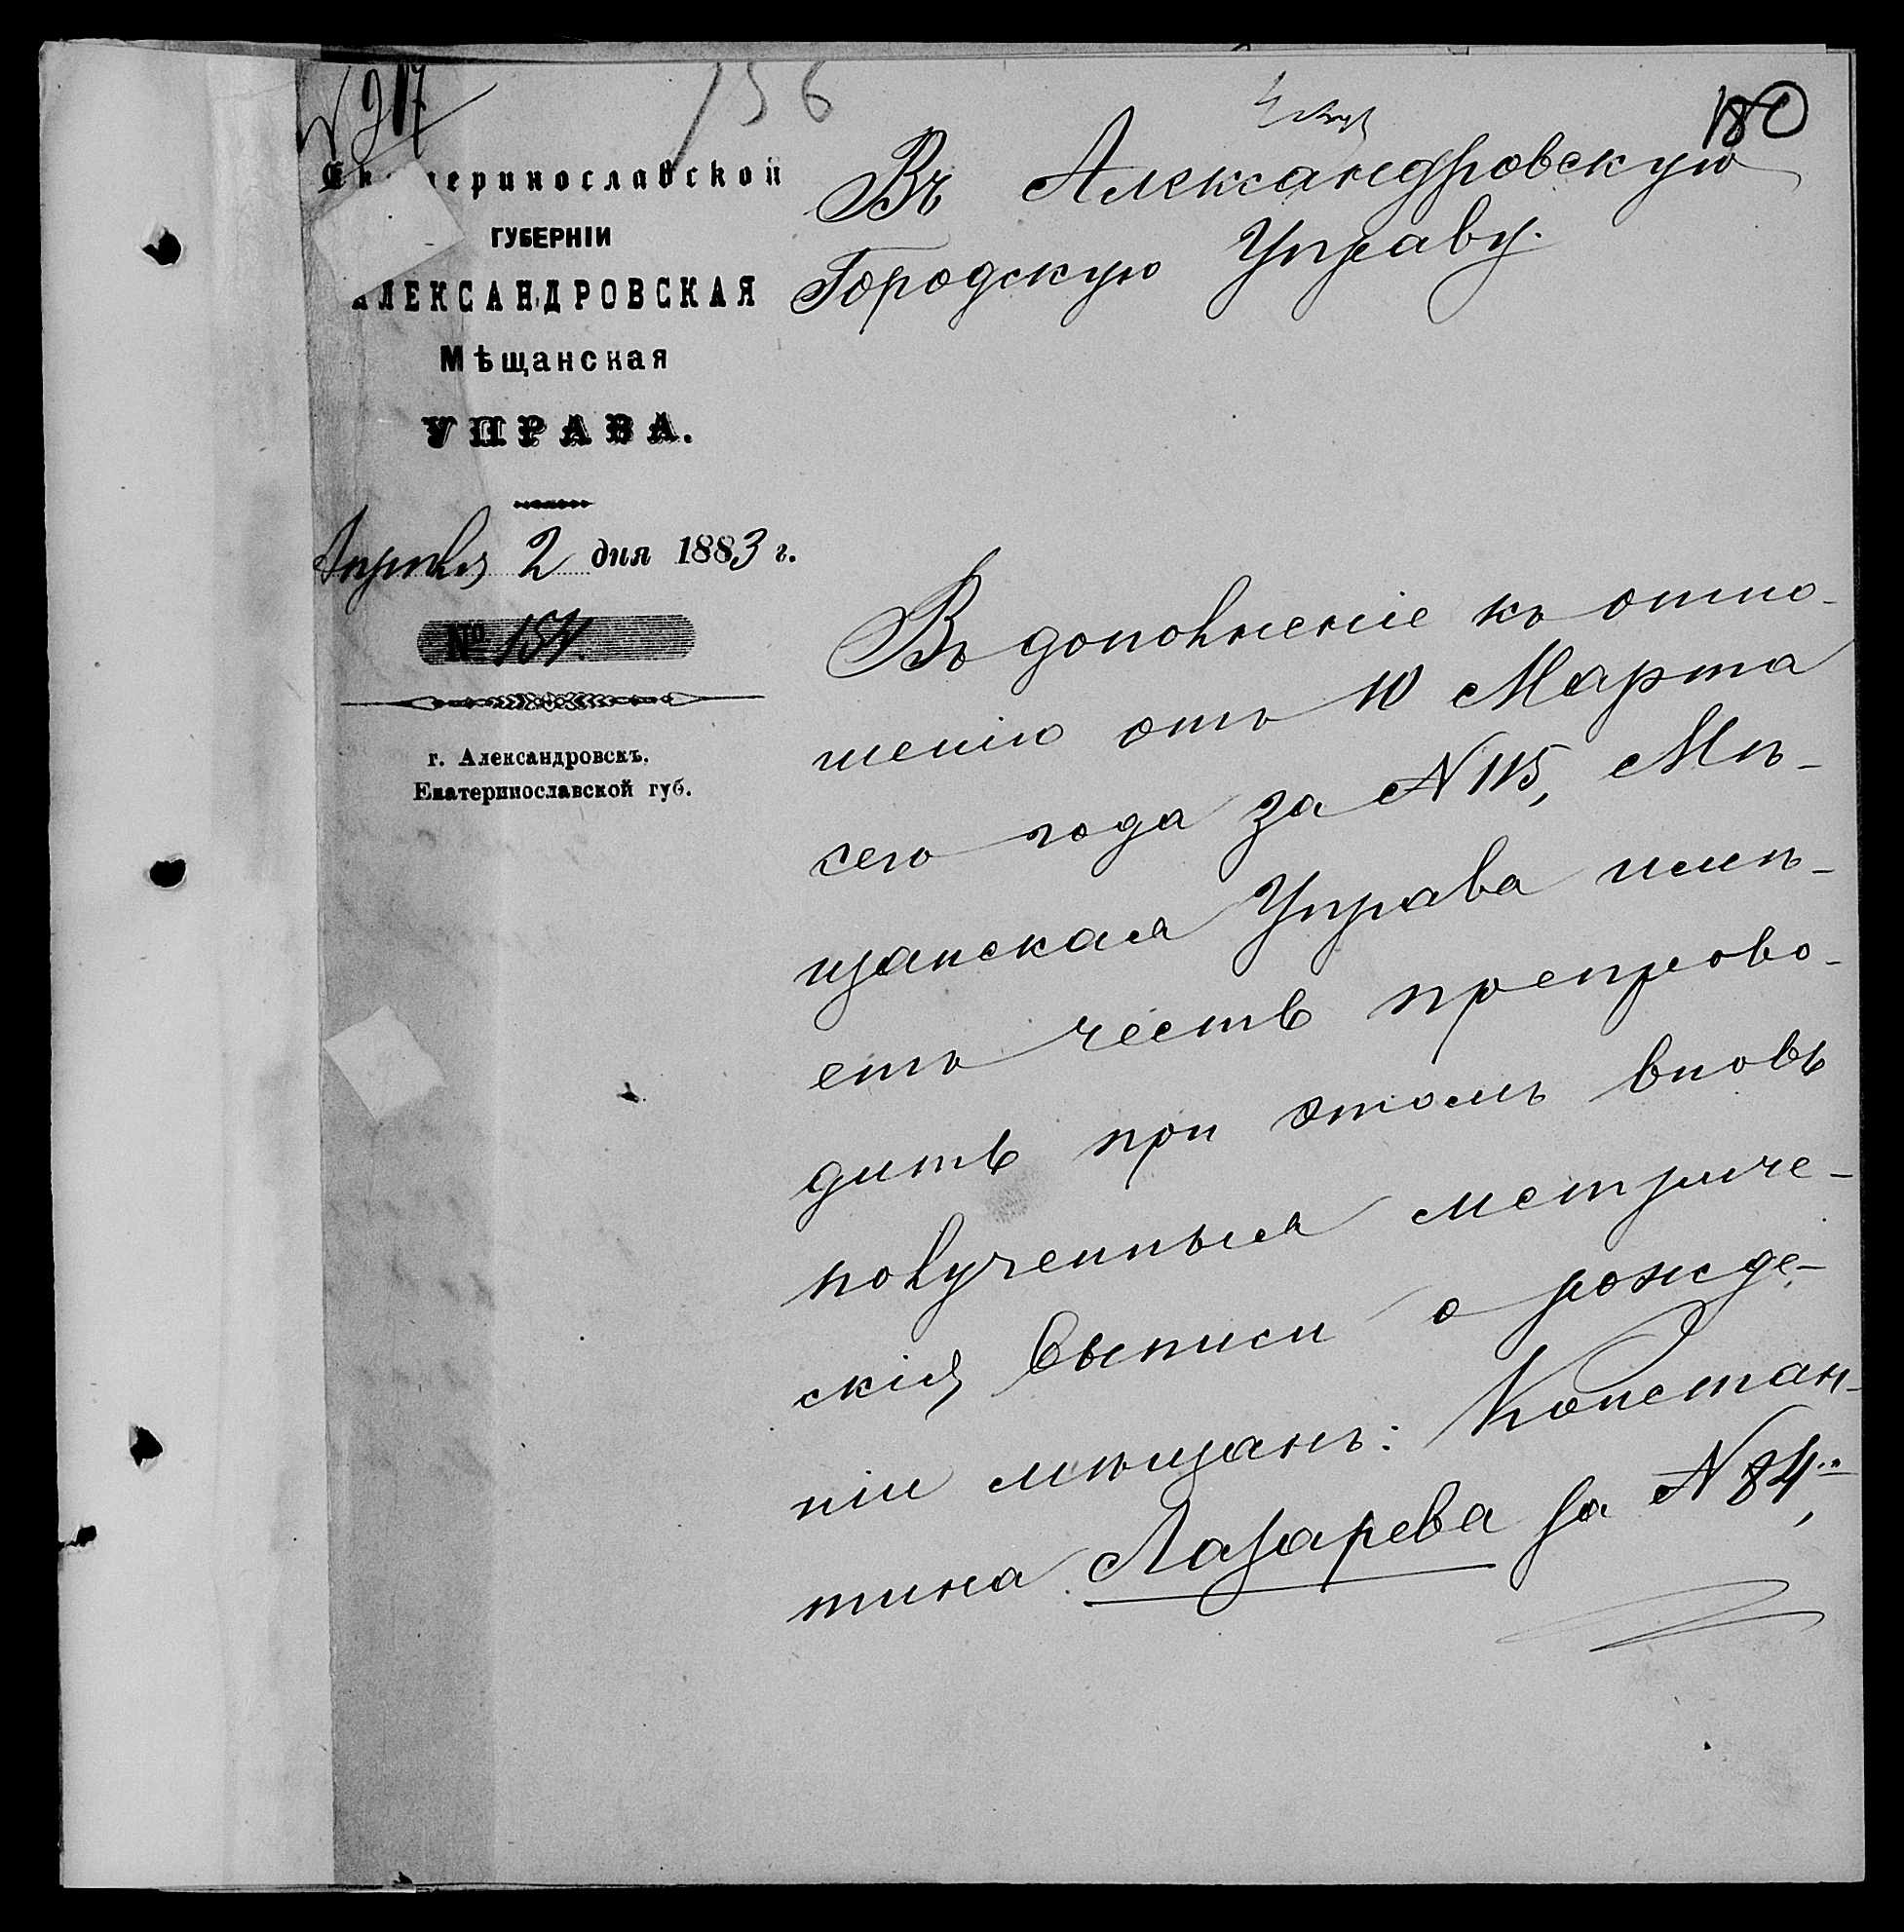 № 217
156
180
Екатеринославской
ГУБЕРНІИ
АЛЕКСАНДРОВСКАЯ
Мѣщанская
УПРАВА.
Апрѣля 2 дня 1883 г.
№ 154.
г. Александровскъ,
Екатеринославской губ.
Въ Александровскую
Городскую Управу.
Въ дополненіе къ отно-
шенію отъ 10 Марта
сего года за № 115, Мѣ-
щанская Управа имѣ-
етъ честь препрово-
дить при этомъ вновь
полученныя метриче-
скія выписи о рожде-
ніи мѣщанъ: Констан-
тина Лазарева за № 84,